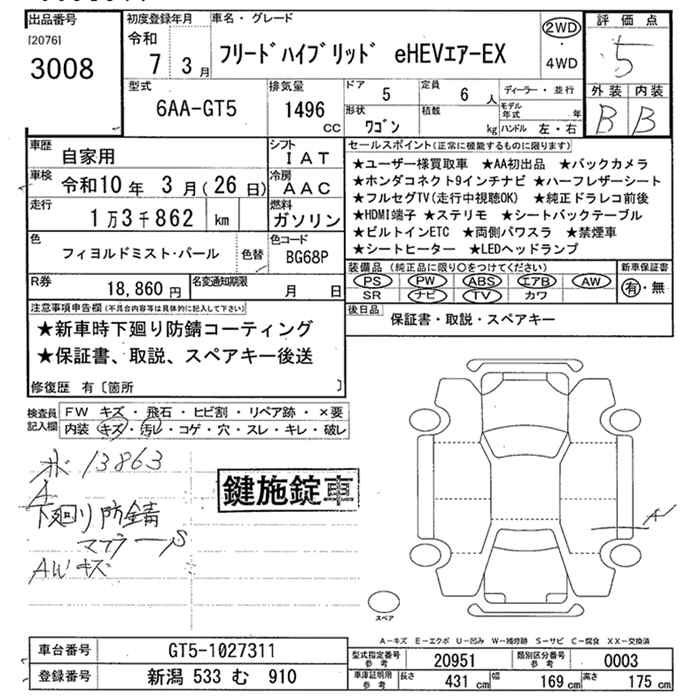 出品番号
[2076]
3008
初度登録年月
令和
7 3月
車名・グレード
フリードハイブリッド eHEVエアーEX
2WD
・
4WD
評価点
5
外装 内装
B B
型式
6AA-GT5
排気量
1496
CC
ドア
5
定員
6 人
形状
ワゴン
積載
kg
ディーラー・並行
モデル年式 年
ハンドル 左・右
車歴
自家用
シフト
IAT
車検
令和10年 3月(26日)
冷房
AAC
走行
1万3千862 km
燃料
ガソリン
色
フィヨルドミスト・パール
色替
色コード
BG68P
R券
18,860円
名変通知期限
月 日
セールスポイント(正常に機能するものに限ります)
★ユーザー様買取車 ★AA初出品 ★バックカメラ
★ホンダコネクト9インチナビ ★ハーフレザーシート
★フルセグTV(走行中視聴OK) ★純正ドラレコ前後
★HDMI端子 ★ステリモ ★シートバックテーブル
★ビルトインETC ★両側パワスラ ★禁煙車
★シートヒーター ★LEDヘッドランプ
装備品(純正品に限り〇をつけてください)
PS PW ABS エアB AW
SR ナビ TV カワ
新車保証書
有・無
後日品
保証書・取説・スペアキー
注意事項申告欄(不具合内容等は具体的に記入して下さい)
★新車時下廻り防錆コーティング
★保証書、取説、スペアキー後送
修復歴 有〔箇所 〕
検査員記入欄
FW キズ・飛石・ヒビ割・リペア跡・×要
内装 キズ・汚レ・コゲ・穴・スレ・キレ・破レ
13863
A
下廻り防錆
マフラーS
AWキズ
鍵施錠車
A
スペア
A－キズ E－エクボ U－凹み W－補修跡 S－サビ C－腐食 XX－交換済
車台番号
GT5-1027311
登録番号
新潟 533 む 910
型式指定番号
参考
20951
類別区分番号
参考
0003
車庫証明用
参考
長さ 431 cm
幅 169 cm
高さ 175 cm